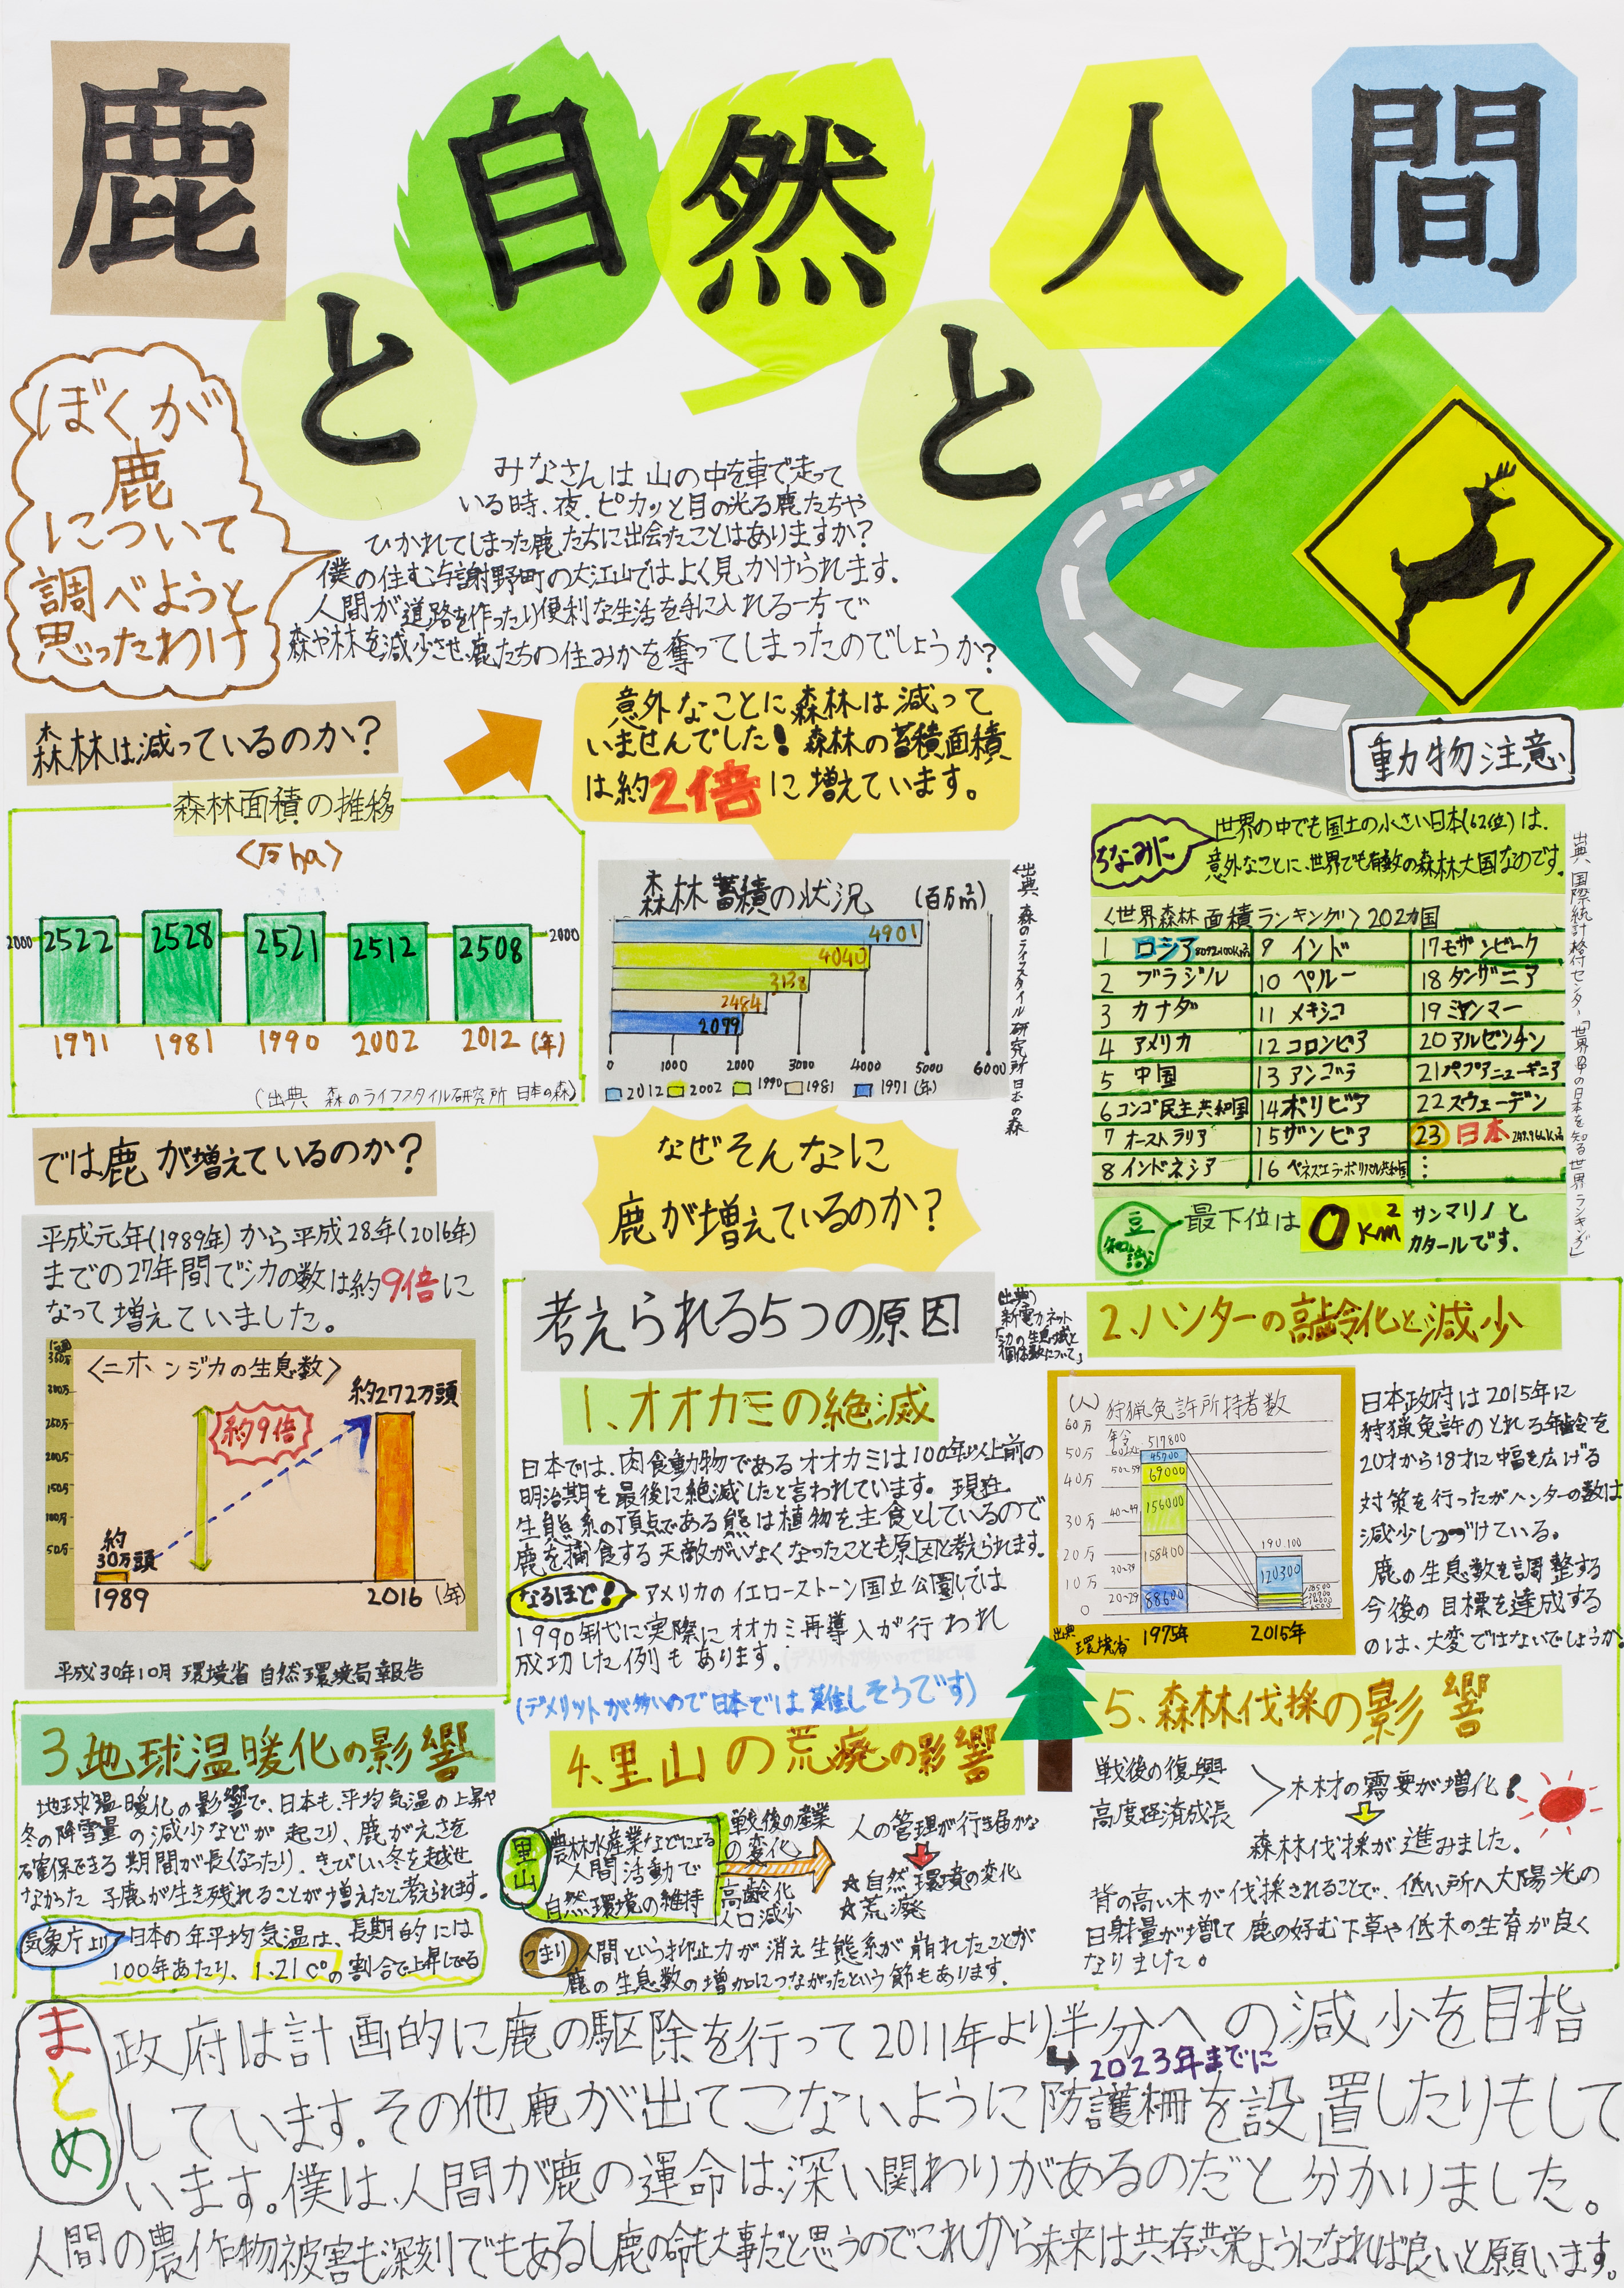 鹿と自然と人間
ぼくが
鹿
について
調べようと
思ったわけ
みなさんは山の中を車で走って
いる時、夜、ピカッと目の光る鹿たちや
ひかれてしまった鹿たちに出会ったことはありますか?
僕の住む与謝野町の大江山ではよく見かけられます。
人間が道路を作ったり便利な生活を手に入れる一方で
森や林を減少させ、鹿たちの住みかを奪ってしまったのでしょうか?
動物注意
森林は減っているのか?
意外なことに森林は減って
いませんでした!森林の蓄積面積
は約2倍に増えています。
森林面積の推移
<万ha>
2000
2522
2528
2521
2512
2508
2000
1971 1981 1990 2002 2012 (年)
(出典 森のライフスタイル研究所 日本の森)
森林蓄積の状況 (百万㎥)
4901
4040
3138
2484
2099
0 1000 2000 3000 4000 5000 6000
2012 2002 1990 1981 1971(年)
(出典 森のライフスタイル研究所日本の森
ちなみに
世界の中でも国土の小さい日本(62位)は、
意外なことに、世界でも有数の森林大国なのです。
<世界森林面積ランキング>202カ国
1 ロシア 8092100K㎡ 9 インド 17モザンビーク
2 ブラジル 10 ペルー 18タンザニア
3 カナダ 11 メキシコ 19ミャンマー
4 アメリカ 12 コロンビア 20アルゼンチン
5 中国 13 アンゴラ 21パプアニューギニア
6コンゴ民主共和国 14ボリビア 22スウェーデン
7 オーストラリア 15ザンビア 23 日本 249.966K㎡
8インドネシア 16 ベネズエラ・ボリバル共和国 ⋮
出典 国際統計格付センター「世界の中の日本を知る世界ランキング」
豆知識
最下位は 0km² サンマリノと
カタールです。
では鹿が増えているのか?
平成元年(1989年)から平成28年(2016年)
までの27年間でシカの数は約9倍に
なって増えていました。
<ニホンジカの生息数>
350万
300万
250万
200万
150万
100万
50万
約9倍
約272万頭
約
30万頭
1989 2016 (年)
平成30年10月 環境省 自然環境局報告
なぜそんなに
鹿が増えているのか?
考えられる5つの原因
(出典)
新電力ネット
「シカの生息域と
個体数について」
1、オオカミの絶滅
日本では、肉食動物であるオオカミは100年以上前の
明治期を最後に絶滅したと言われています。現在、
生態系の頂点である熊は植物を主食としているので
鹿を捕食する天敵がいなくなったことも原因と考えられます。
なるほど!
アメリカのイエローストーン国立公園では
1990年代に実際にオオカミ再導入が行われ
成功した例もあります。
(デメリットが多いので日本では難しそうです)
2、ハンターの高齢化と減少
(人) 狩猟免許所持者数
60万
50万
40万
30万
20万
10万
0
年令
60以上
50~59
40~49
30~39
20~29
517800
45700
69000
156000
158400
88600
190,100
120300
出典 環境省 1975年 2015年
日本政府は2015年に
狩猟免許のとれる年齢を
20才から18才に幅を広げる
対策を行ったがハンターの数は
減少しつづけている。
鹿の生息数を調整する
今後の目標を達成する
のは、大変ではないでしょうか。
3、地球温暖化の影響
地球温暖化の影響で、日本も、平均気温の上昇や
冬の降雪量の減少などが起こり、鹿がえさを
確保できる期間が長くなったり、きびしい冬を越せ
なかった子鹿が生き残れることが増えたと考えられます。
気象庁より
日本の年平均気温は、長期的には
100年あたり、1.21C°の割合で上昇してる
4、里山の荒廃の影響
里山
農林水産業などによる
人間活動で
自然環境の維持
戦後の産業
の変化
高齢化
人口減少
人の管理が行き届かな
☆自然環境の変化
☆荒廃
つまり
人間という抑止力が消え生態系が崩れたことが
鹿の生息数の増加につながったという節もあります。
5、森林伐採の影響
戦後の復興
高度経済成長
木材の需要が増化!
森林伐採が進みました。
背の高い木が伐採されることで、低い所へ太陽光の
日射量が増て鹿の好む下草や低木の生育が良く
なりました。
まとめ
政府は計画的に鹿の駆除を行って2011年より半分への減少を目指
2023年までに
しています。その他鹿が出てこないように防護柵を設置したりもして
います。僕は、人間が鹿の運命は深い関わりがあるのだと分かりました。
人間の農作物被害も深刻でもあるし鹿の命も大事だと思うのでこれから未来は共存共栄ようになれば良いと願います。